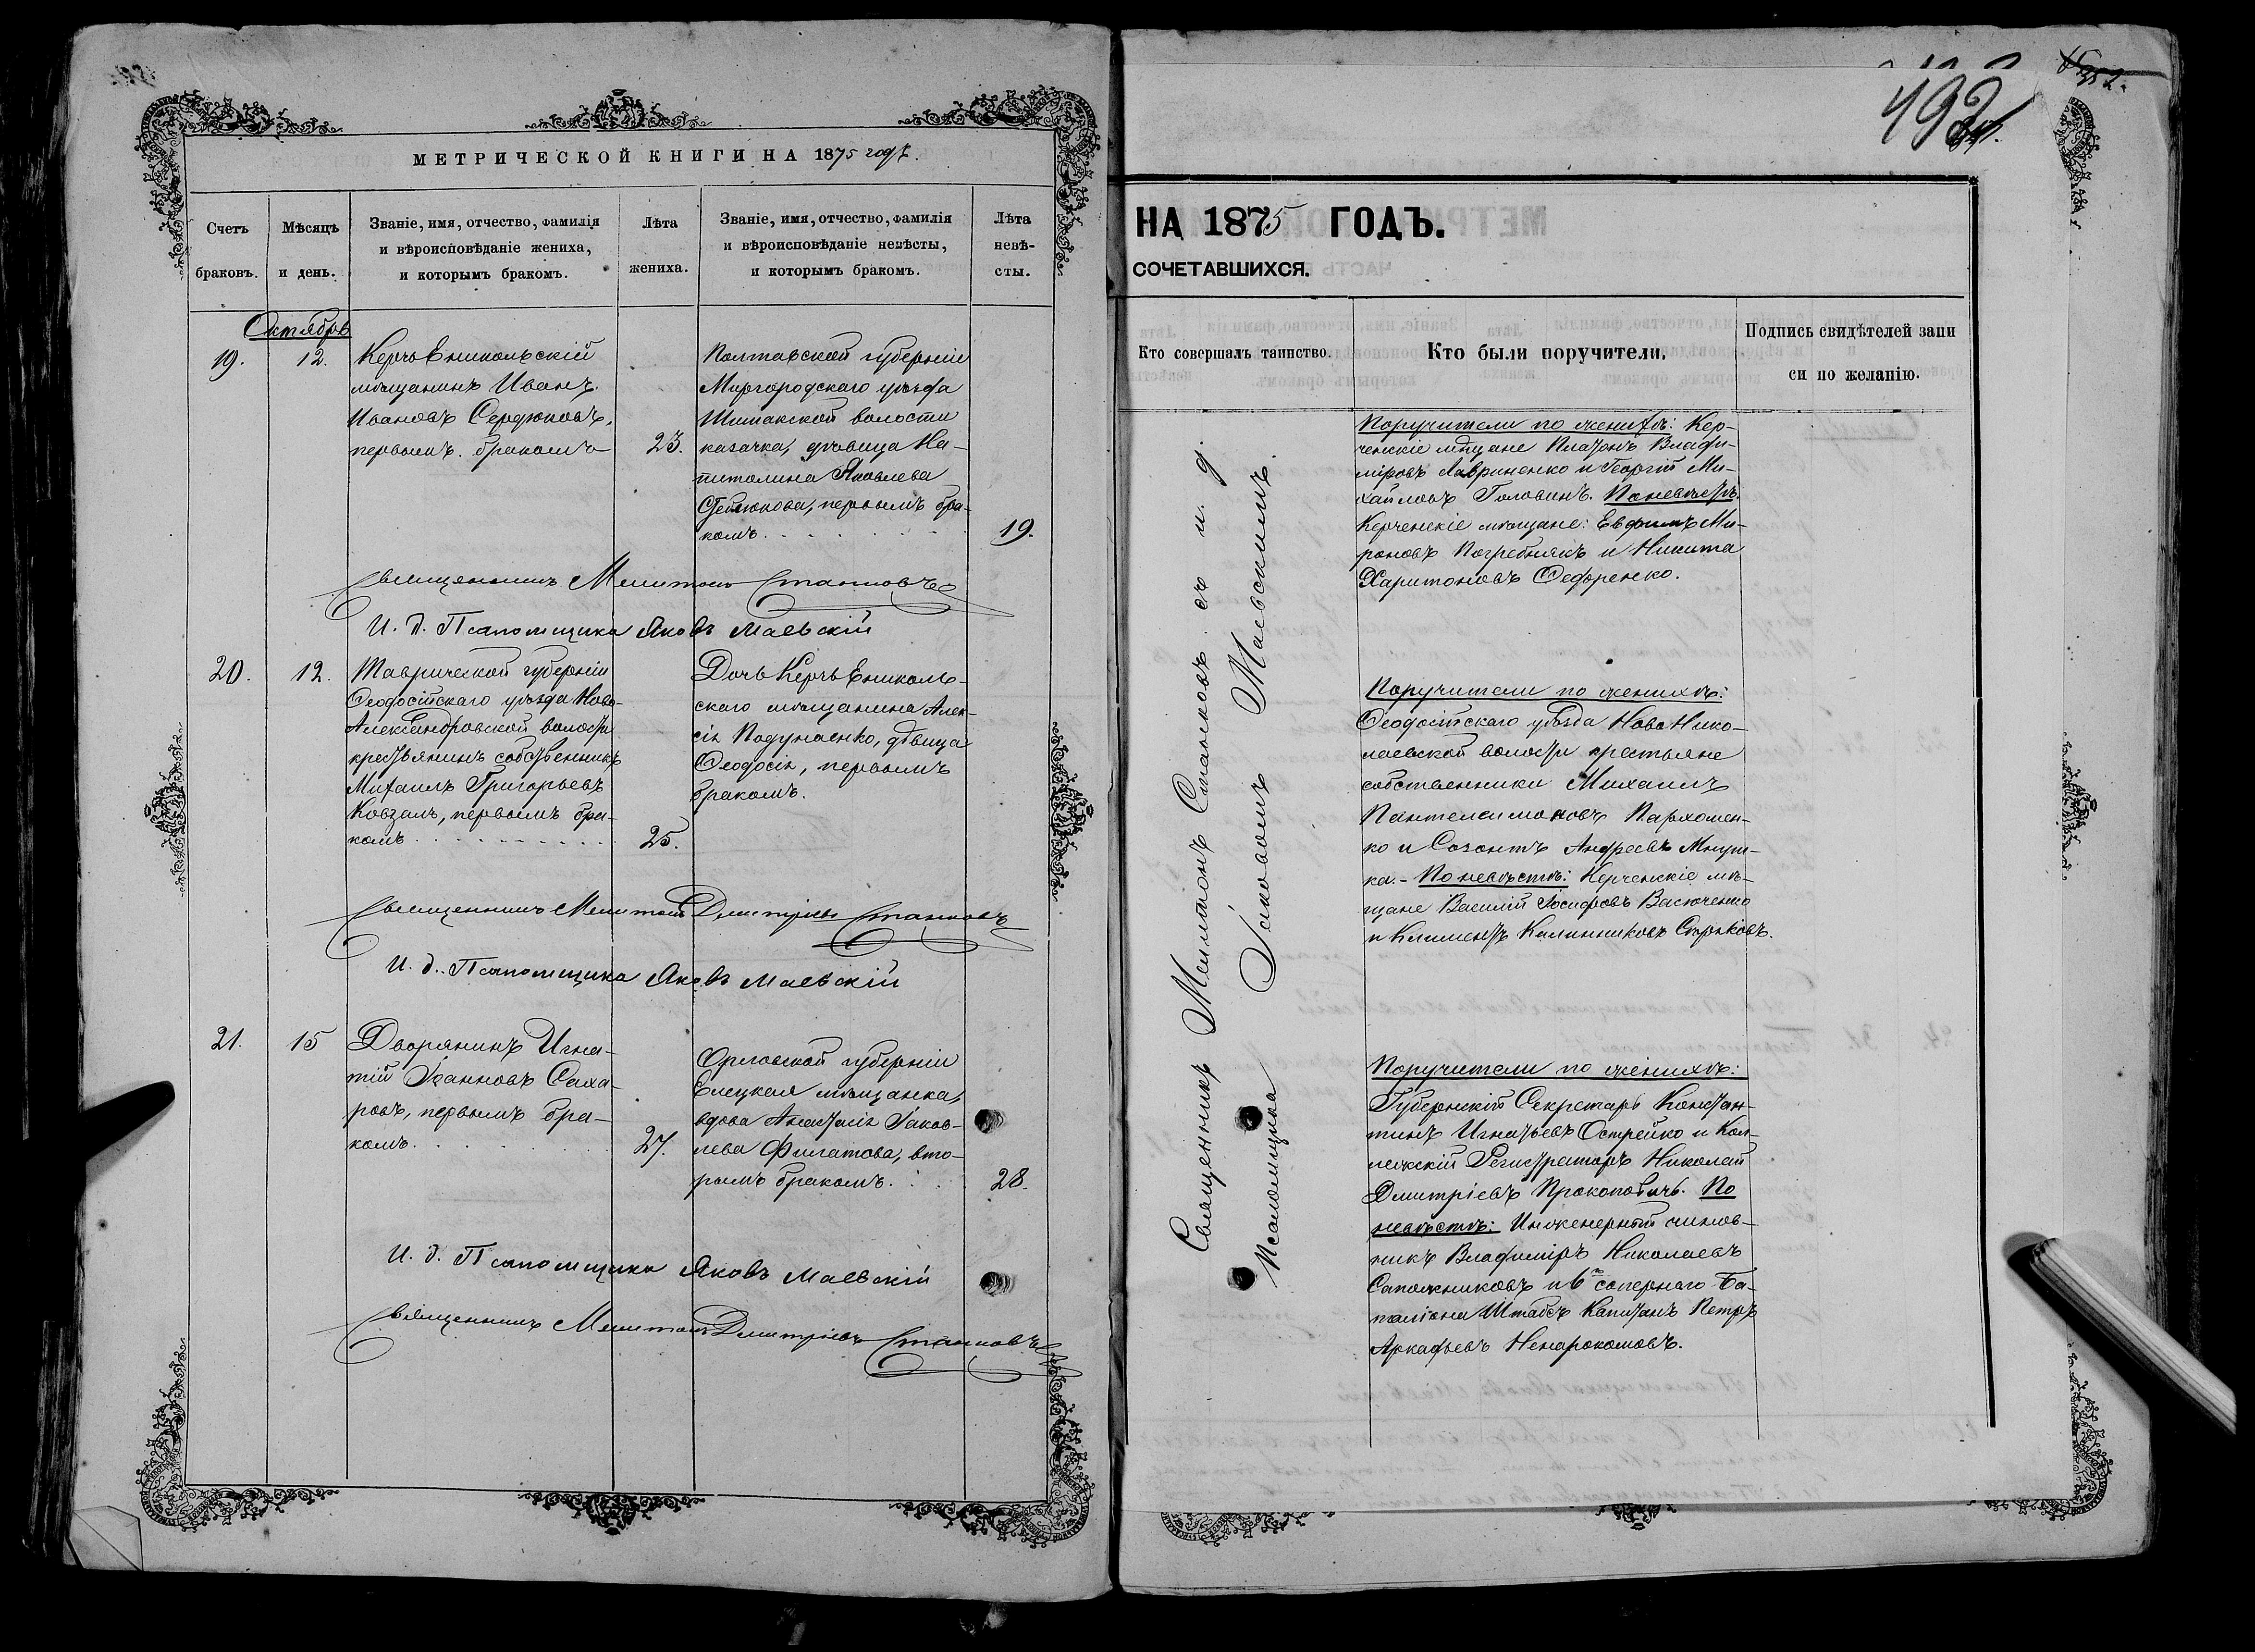 МЕТРИЧЕСКОЙ КНИГИ НА 1875 годъ.
Счетъ браковъ.
Мѣсяцъ и день.
Званіе, имя, отчество, фамилія
и вѣроисповѣданіе жениха,
и которымъ бракомъ.
Лѣта жениха.
Званіе, имя, отчество, фамилія
и вѣроисповѣданіе невѣсты,
и которымъ бракомъ.
Лѣта
невѣ-
сты.
Октябрь
19.
12.
Керчь Еникольскій
мѣщанинъ Иванъ
Ивановъ Сердюковъ,
первымъ бракомъ
23.
Полтавской губерніи
Миргородскаго уѣзда
Шишакской волости
казачка, дѣвица Ка-
питолина Яковлева
первымъ бра-
комъ
19.
Священникъ Мелитонъ Станковъ
И. д. Псаломщика Яковъ Маевскій
20.
12.
Таврической губерніи
Ѳеодосійскаго уѣзда Ново-
Александровской волости
крестьянинъ собственникъ
Михаилъ Григорьевъ
Ковзалъ, первымъ бра-
комъ
25.
Дочь Керчь Ениколь-
скаго мѣщанина Алек-
сія Подунаенко, дѣвица
Ѳеодосія, первымъ
бракомъ.
Священникъ Мелитонъ Дмитріевъ Станковъ
И. д. Псаломщика Яковъ Маевскій
21.
15
Дворянинъ Игна-
тій Іоанновъ Саха-
ровъ, первымъ бра-
комъ
27.
Орловской губерніи
Елецкая мѣщанка,
вдова Анастасія Іаков-
лева Филатова, вто-
рымъ бракомъ.
28.
И. д. Псаломщика Яковъ Маевскій
Священникъ Мелитонъ Дмитріевъ Станковъ
492
НА 1875 ГОДЪ.
СОЧЕТАВШИХСЯ.
Кто совершалъ таинство.
Кто были поручители.
Подпись свидѣтелей запи
си по желанію.
Священникъ Мелитонъ Станковъ съ и. д.
Псаломщика Іаковомъ Маевскимъ.
Поручители по женихѣ: Кер-
ченскіе мѣщане Платонъ Влади-
міровъ Лавриненко и Георгій Ми-
хайловъ Головинъ. По невѣстѣ:
Керченскіе мѣщане: Евфимъ Ми-
роновъ Погребнякъ и Никита
Харитоновъ Ѳедоренко.
Поручители по женихѣ:
Ѳеодосійскаго уѣзда Ново Нико-
лаевской волости крестьяне
собственники Михаилъ
Пантелеимоновъ Пархомен-
ко и Созонтъ Андреевъ
ка. - По невѣстѣ: Керченскіе мѣ-
щане Василій Іосифовъ Васюченко
и Климентъ Калинниковъ
Поручители по женихѣ:
Губернскій Секретарь Констан-
тинъ Игнатьевъ Острейко и Кол-
лежскій Регистраторъ Николай
Дмитріевъ Прокоповичъ. По
невѣстѣ: Инженерный чинов-
никъ Владиміръ Николаевъ
Сапожниковъ и 6го сапернаго Ба-
таліона Штабсъ Капитанъ Петръ
Аркадьевъ Ненарокомовъ.